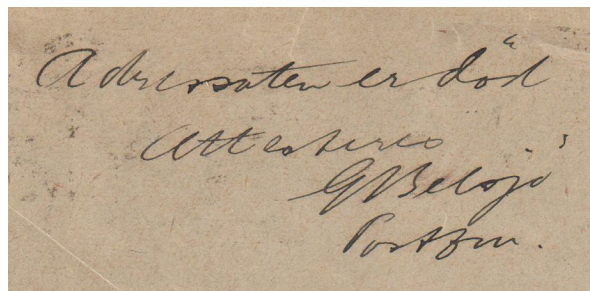 Adressaten er död
Attesteres
G Belsjö
Postbm.